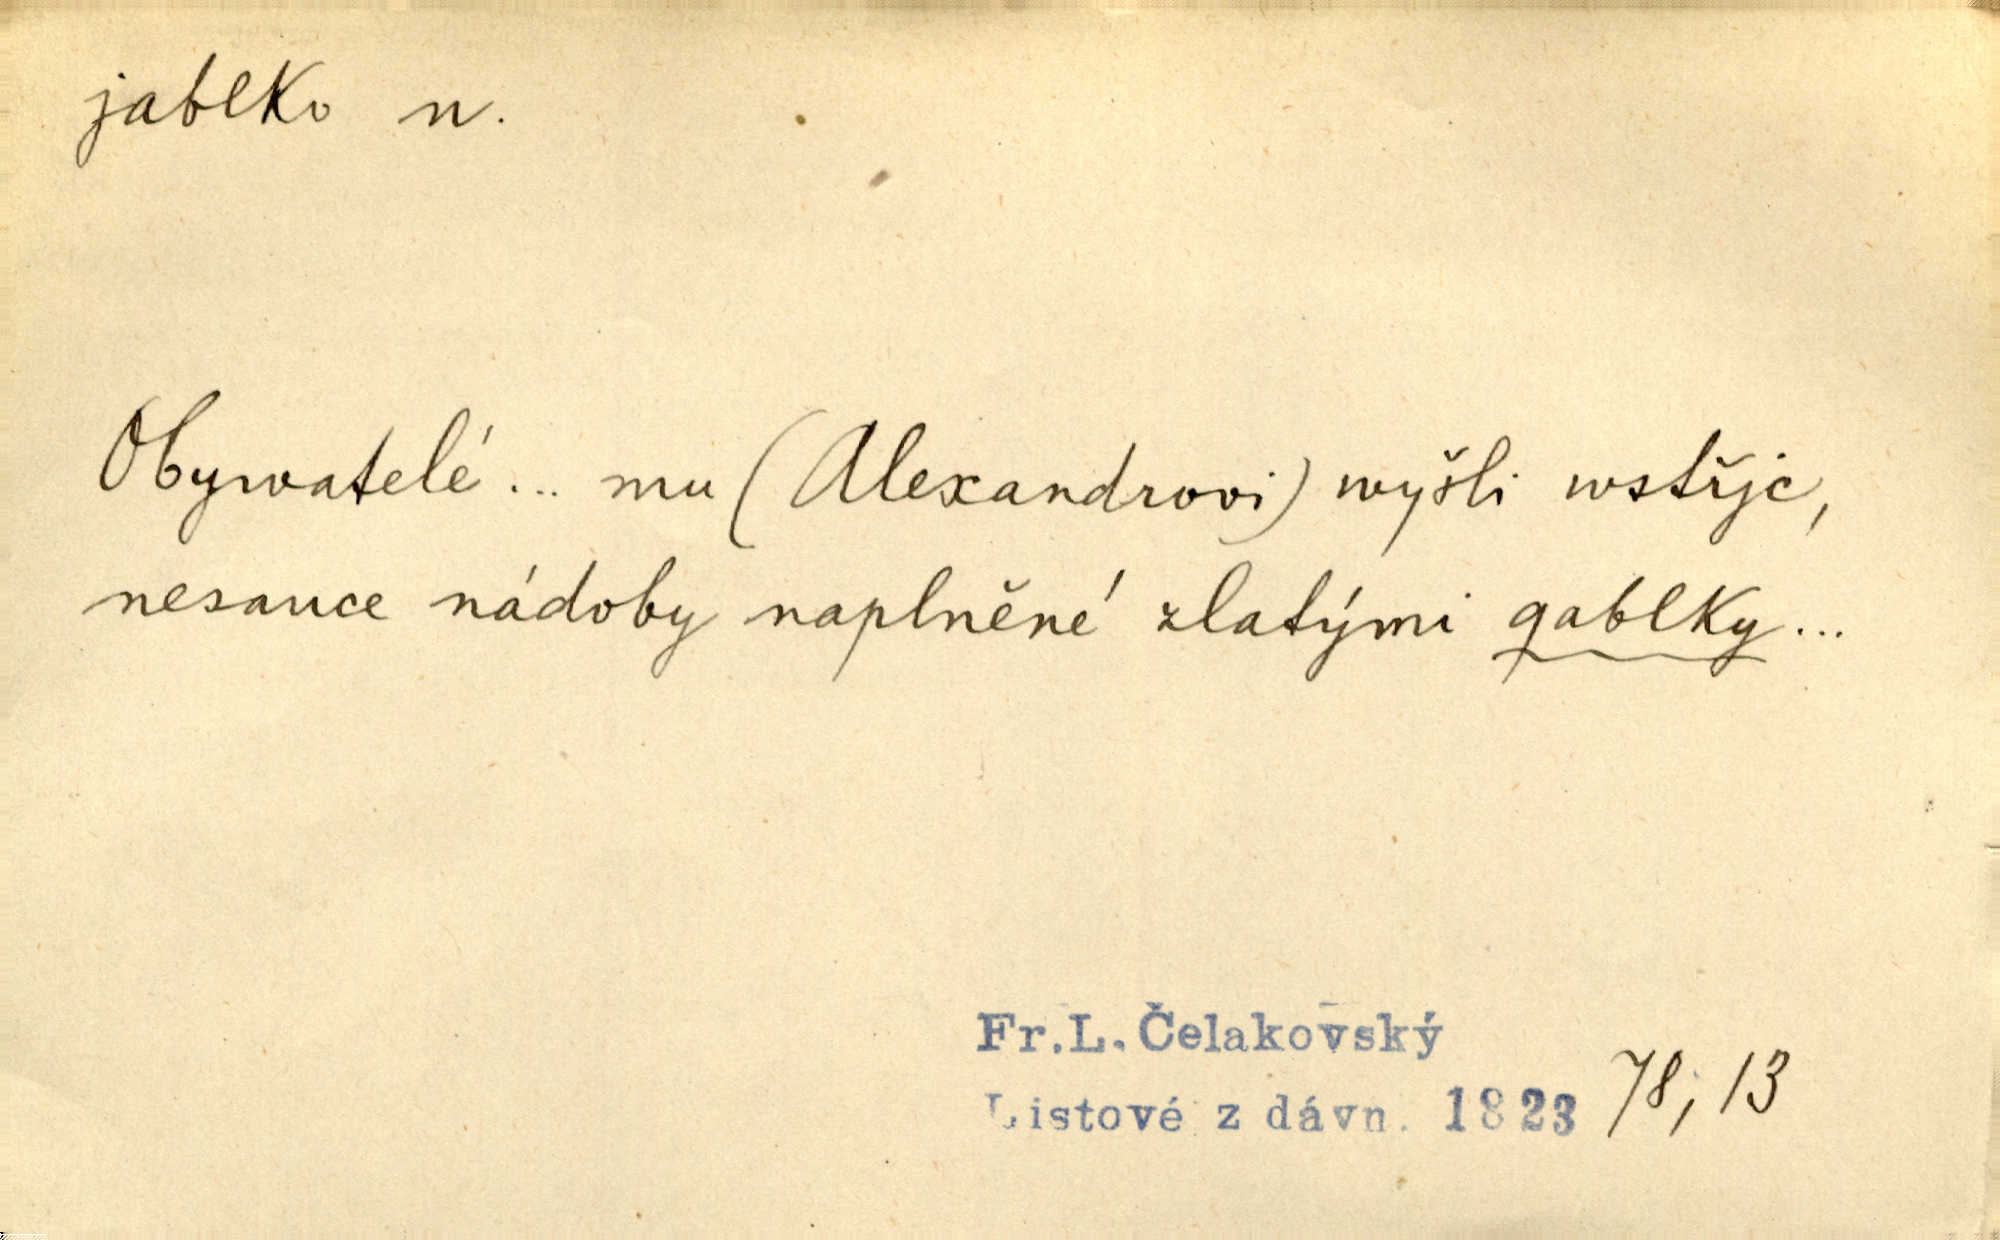 jablko n.
Obywatelé... mu (Alexandrovi) wyšli wstřjc,
nesauce nádoby naplněné zlatými gablky...
Fr.L. Čelakovský
Listové z dávn. 1823 78; 13